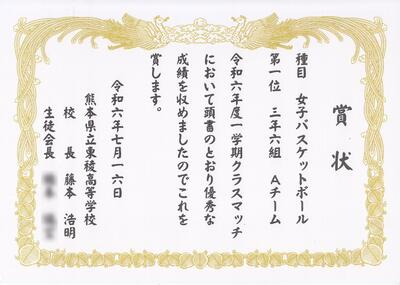 賞状
種目 女子バスケットボール
第一位 三年六組 Aチーム
令和六年度一学期クラスマッチ
において頭書のとおり優秀な
成績を収めましたのでこれを
賞します。
令和六年七月一六日
熊本県立東稜高等学校
校長 藤本 浩明
生徒会長